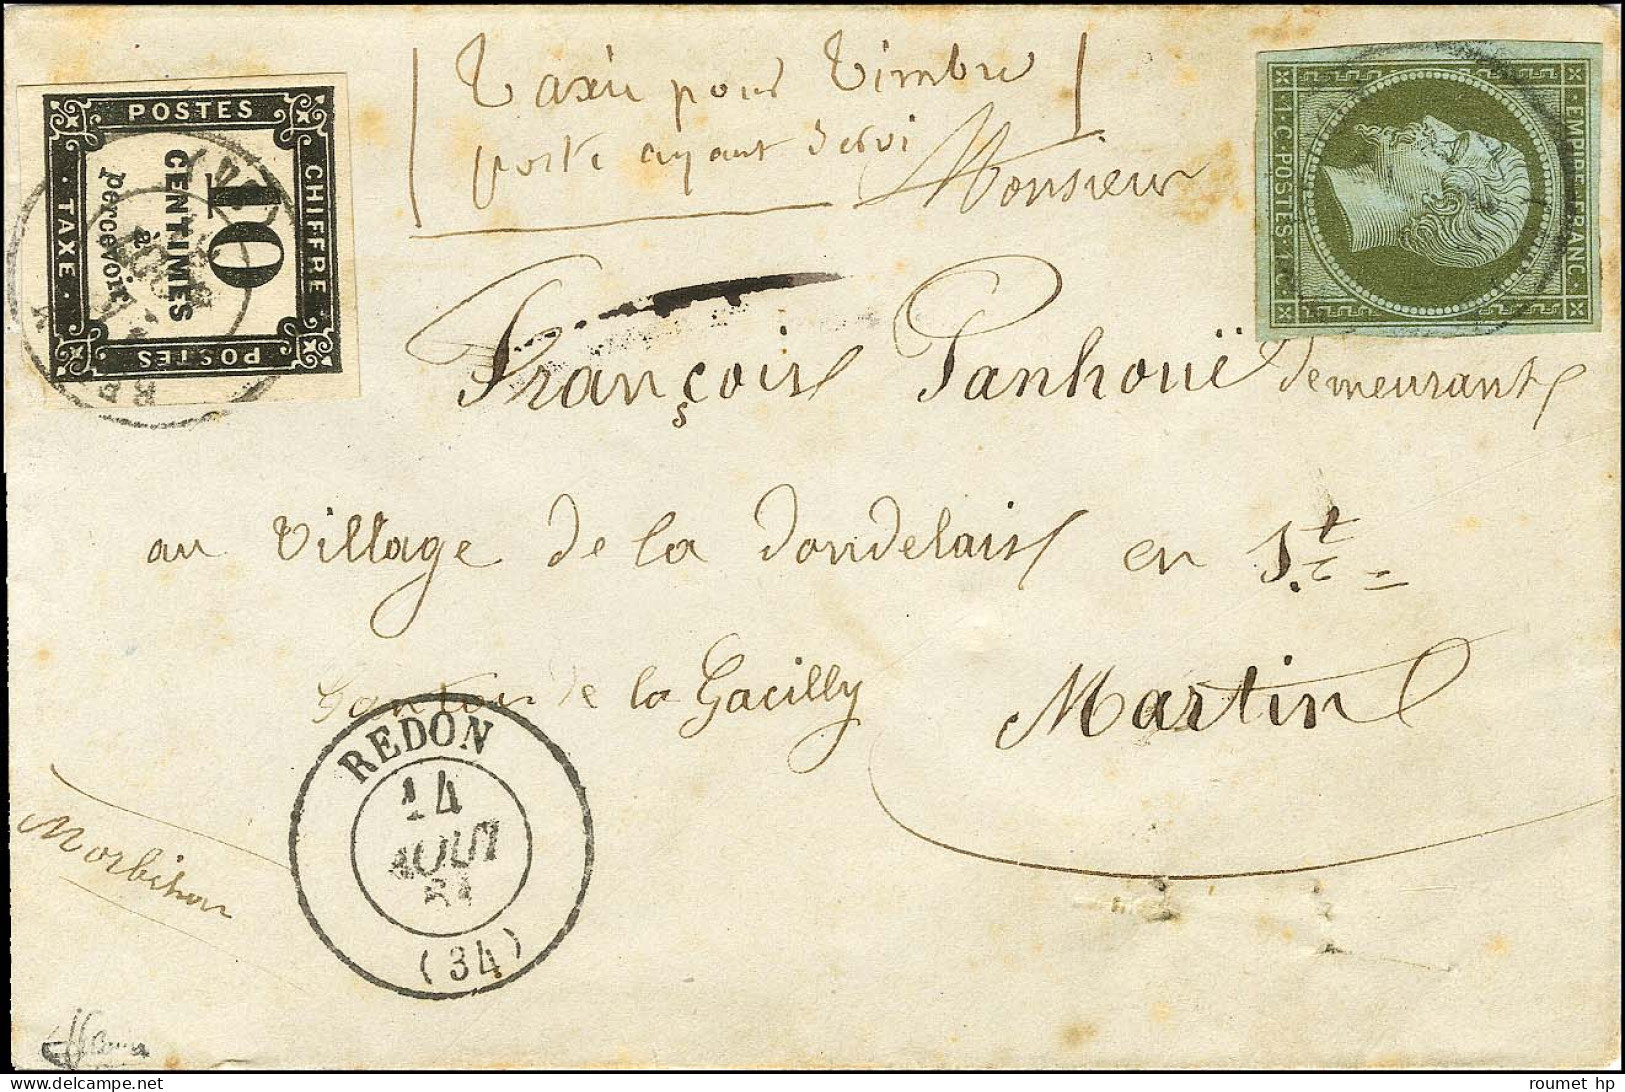 Taxée pour Timbre
poste ayant servi
Monsieur
François Panhouë demeurant
au village de la Dondelais en St.
Canton de la Gacilly Martin
Morbihan
POSTES
CHIFFRE
POSTES
TAXE
10
CENTIMES
à
percevoir
RE
EMPIRE FRANC.
1·C·POSTES·1·C
REDON
14
AOUT
61
(34)
roumet hp